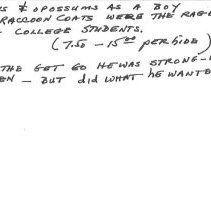 S & OPOSSUMS AS A BOY
RACCOON COATS WERE THE RAGE
COLLEGE STUDENTS.
(7.50 - 15.00 per hide)
THE GET GO HE WAS STRONG-
EN - BUT did WHAT he WANTE